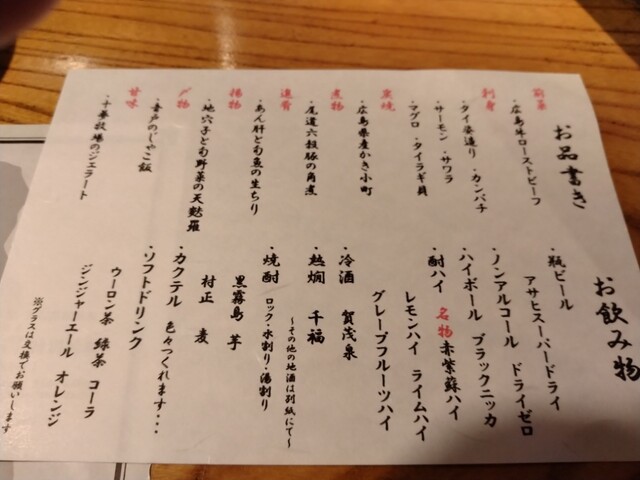 お品書き
前菜
・広島牛ローストビーフ
刺身
・タイ姿造り ・カンパチ
・サーモン ・サワラ
・マグロ ・タイラギ貝
炭焼
・広島県産かき小町
煮物
・尾道六穀豚の角煮
進肴
・あん肝と旬魚の生ちり
揚物
・地穴子と旬野菜の天麩羅
〆物
・音戸のじゃこ飯
甘味
・十番牧場のジェラート
お飲み物
・瓶ビール
アサヒスーパードライ
・ノンアルコール ドライゼロ
・ハイボール ブラックニッカ
・酎ハイ 名物赤紫蘇ハイ
レモンハイ ライムハイ
グレープフルーツハイ
・冷酒 賀茂泉
・熱燗 千福
〜その他の地酒は別紙にて〜
・焼酎 ロック・水割り・湯割り
黒霧島 芋
村正 麦
・カクテル 色々つくれます・・・
・ソフトドリンク
ウーロン茶 緑茶 コーラ
ジンジャーエール オレンジ
※グラスは交換でお願いします